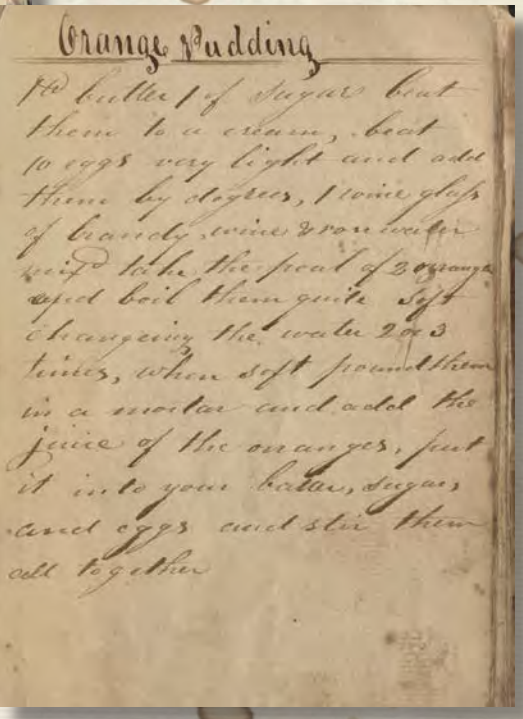 Orange Pudding
1 lb butter 1 of sugar beat
them to a cream, beat
10 eggs very light and add
them by degrees, 1 wine glass
of brandy, wine & rose water
mixd take the peal of 2 oranges
and boil them quite soft
changeing the water 2 or 3
times, when soft pound them
in a mortar and add the
juice of the oranges, put
it into your butter, sugar,
and eggs and stir them
all together